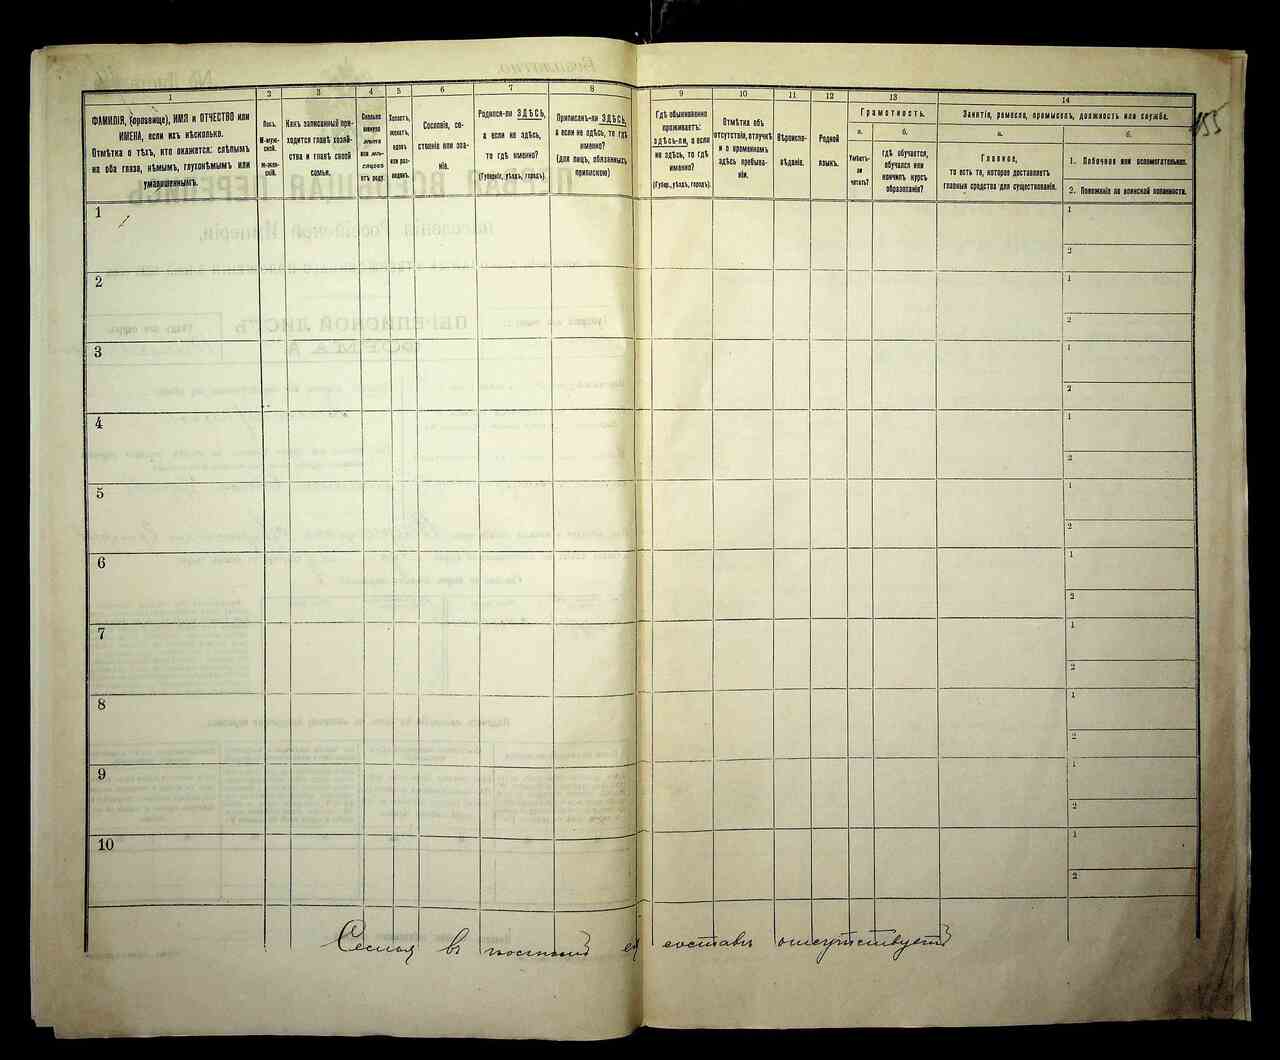 155
1
ФАМИЛІЯ, (прозвище), ИМЯ и ОТЧЕСТВО или
ИМЕНА, если ихъ нѣсколько.
Отмѣтка о тѣхъ, кто окажется: слѣпымъ
на оба глаза, нѣмымъ, глухонѣмымъ или
умалишеннымъ.
2
Полъ.
М-мужской.
Ж-женскій.
3
Какъ записанный при-
ходится главѣ хозяй-
ства и главѣ своей
семьи.
4
Сколько
минуло
лѣтъ
или мѣ-
сяцевъ
отъ роду.
5
Холостъ,
женатъ,
вдовъ
или раз-
веденъ.
6
Сословіе, со-
стояніе или зва-
ніе.
7
Родился-ли ЗДѢСЬ,
а если не здѣсь,
то гдѣ именно?
(Губернія, уѣздъ, городъ).
8
Приписанъ-ли ЗДѢСЬ,
а если не здѣсь, то гдѣ
именно?
(Для лицъ, обязанныхъ
припискою)
9
Гдѣ обыкновенно
проживаетъ:
здѣсь-ли, а если
не здѣсь, то гдѣ
именно?
(Губер., уѣздъ, городъ).
10
Отмѣтка объ
отсутствіи, отлучкѣ
и о временномъ
здѣсь пребыва-
ніи.
11
Вѣроиспо-
вѣданіе.
12
Родной
языкъ.
13
Грамотность.
а.
Умѣетъ-
ли
читать?
б.
гдѣ обучается,
обучался или
кончилъ курсъ
образованія?
14
Занятіе, ремесло, промыселъ, должность или служба.
а.
Главное,
то есть то, которое доставляетъ
главныя средства для существованія.
б.
1. Побочное или вспомогательное.
2. Положеніе по воинской повинности.
1
1
2
2
1
2
3
1
2
4
1
2
5
1
2
6
1
2
7
1
2
8
1
2
9
1
2
10
1
2
Семья въ составѣ отсутствуетъ